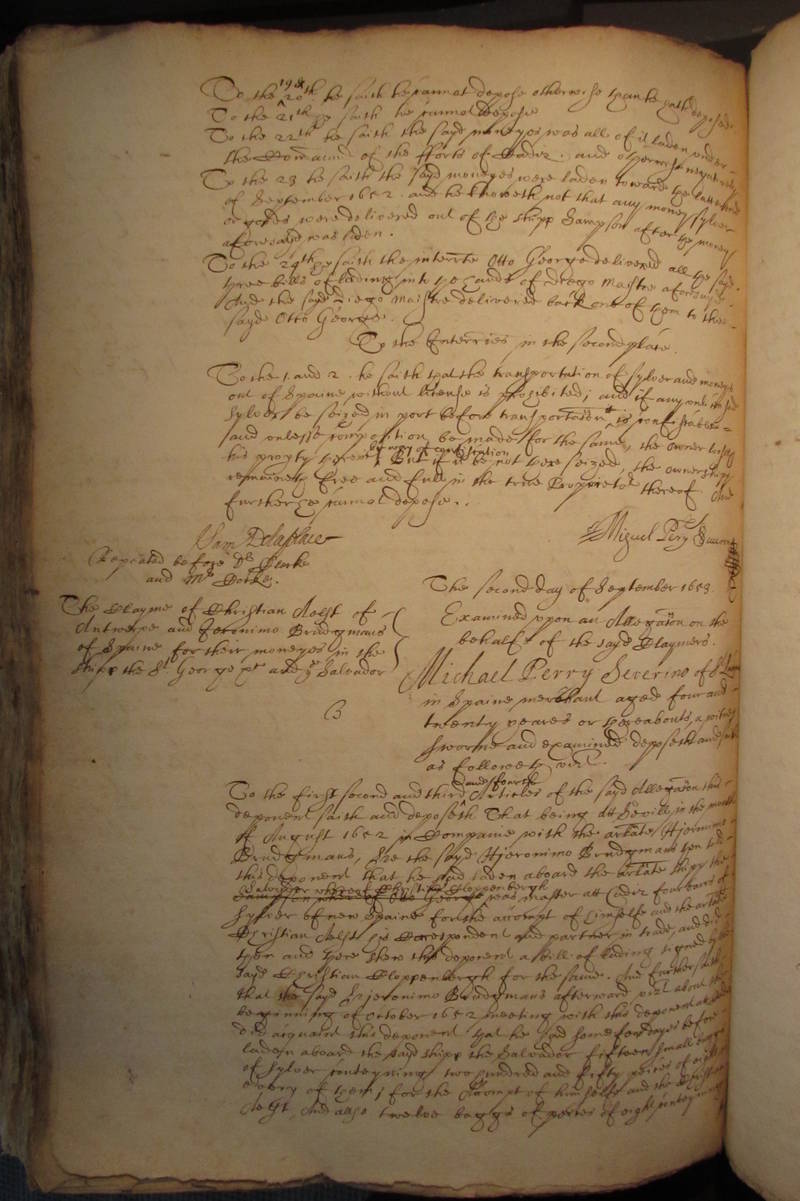 To the 19th & 20th he saith he cannot depose otherwise than he hath deposed.
To the 21th he saith he cannot depose
To the 22th he saith the sayd moneyes was all of it laden under
the Command of the fforts of Cadiz. and otherwise
To the 23 he saith the sayd moneyes were laden towards the latter end
of September 1652. and he knoweth not that any money sylver
or goods were delivered out of the shipp Sampson after the money
aforesayd was laden.
To the 24th he saith the interrate Otto George delivered all the sayd
three bills of lading into the hands of Diego Maistre aforesayd
And the sayd Diego Maistre delivered back one of them to the
sayd Otto George.
To the Interries in the second place.
To the 1. and 2. he saith that the transportation of sylver and moneys
out of Spaine without license is prohibited; and if any one
sylver be seized in port before transportation it is confiscable
and unlesse composition be made for the same, the owner looseth
his property thereof by way of confiscation. But if it be not there seized, the owner
remaineth free and full in the true Proprietor thereof And
further he cannot depose.
Miguel Pery
Sam Delaplace
Repeated before Dr Clerke
and Mr
The second day of September 1653.
The Clayme of Christian Aelst of
Antwerpe and Jeronimo Brudgmans
of Spaine for their moneyes in the
shipp the St George pr and ye Salvador
Examined upon an Allegation on the
behalfe of the sayd Claymers.
Michael Perry Severino of
in Spaine merchant aged four and
twenty yeares or thereabouts, a witnes
sworne and examined deposeth and saith
as followeth vizt.
To the first second and third and fourth Articles of the sayd Allegation this
deponent saith and deposeth That being att Sevill in the month
of August 1652 in Companie with the arlate Hieronimo
Brudgmans, hee the sayd Hieronimo Brudgmans then told
this deponent that he had laden aboard the arlate shipp the
Salvador whereof Christian Cloppenburgh was master att Cadiz four bars of
sylver of new Spaine for the accompt of himselfe and the arlate
Christian Aelst his Correspondent and partner in trade, and did
then and there shew this deponent a bill of lading signed by the
sayd Christian Cloppenburgh for the same. And further saith
that the sayd Hieronimo Brudgmans afterward vizt about the
beginning of October 1652 meeting with this deponent
did acquaint this deponent that he had some four dayes before
laden aboard the sayd shipp the Salvador fifteen small baggs
of sylver conteyning two hundred and fifty peices of eight
every of them; for the Accompt of himselfe and the sayd Christian
Aelst, And allso twelve baggs of peices of eight conteyning